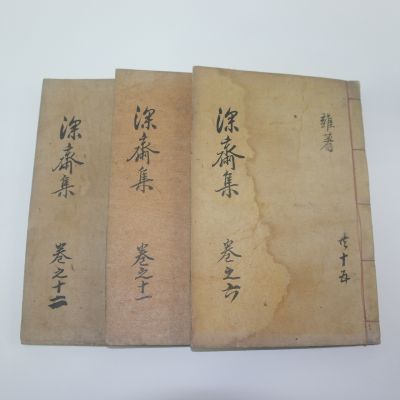 雜著
深齋集
卷之六
共十五
深齋集
卷之十一
深齋集
卷之十二